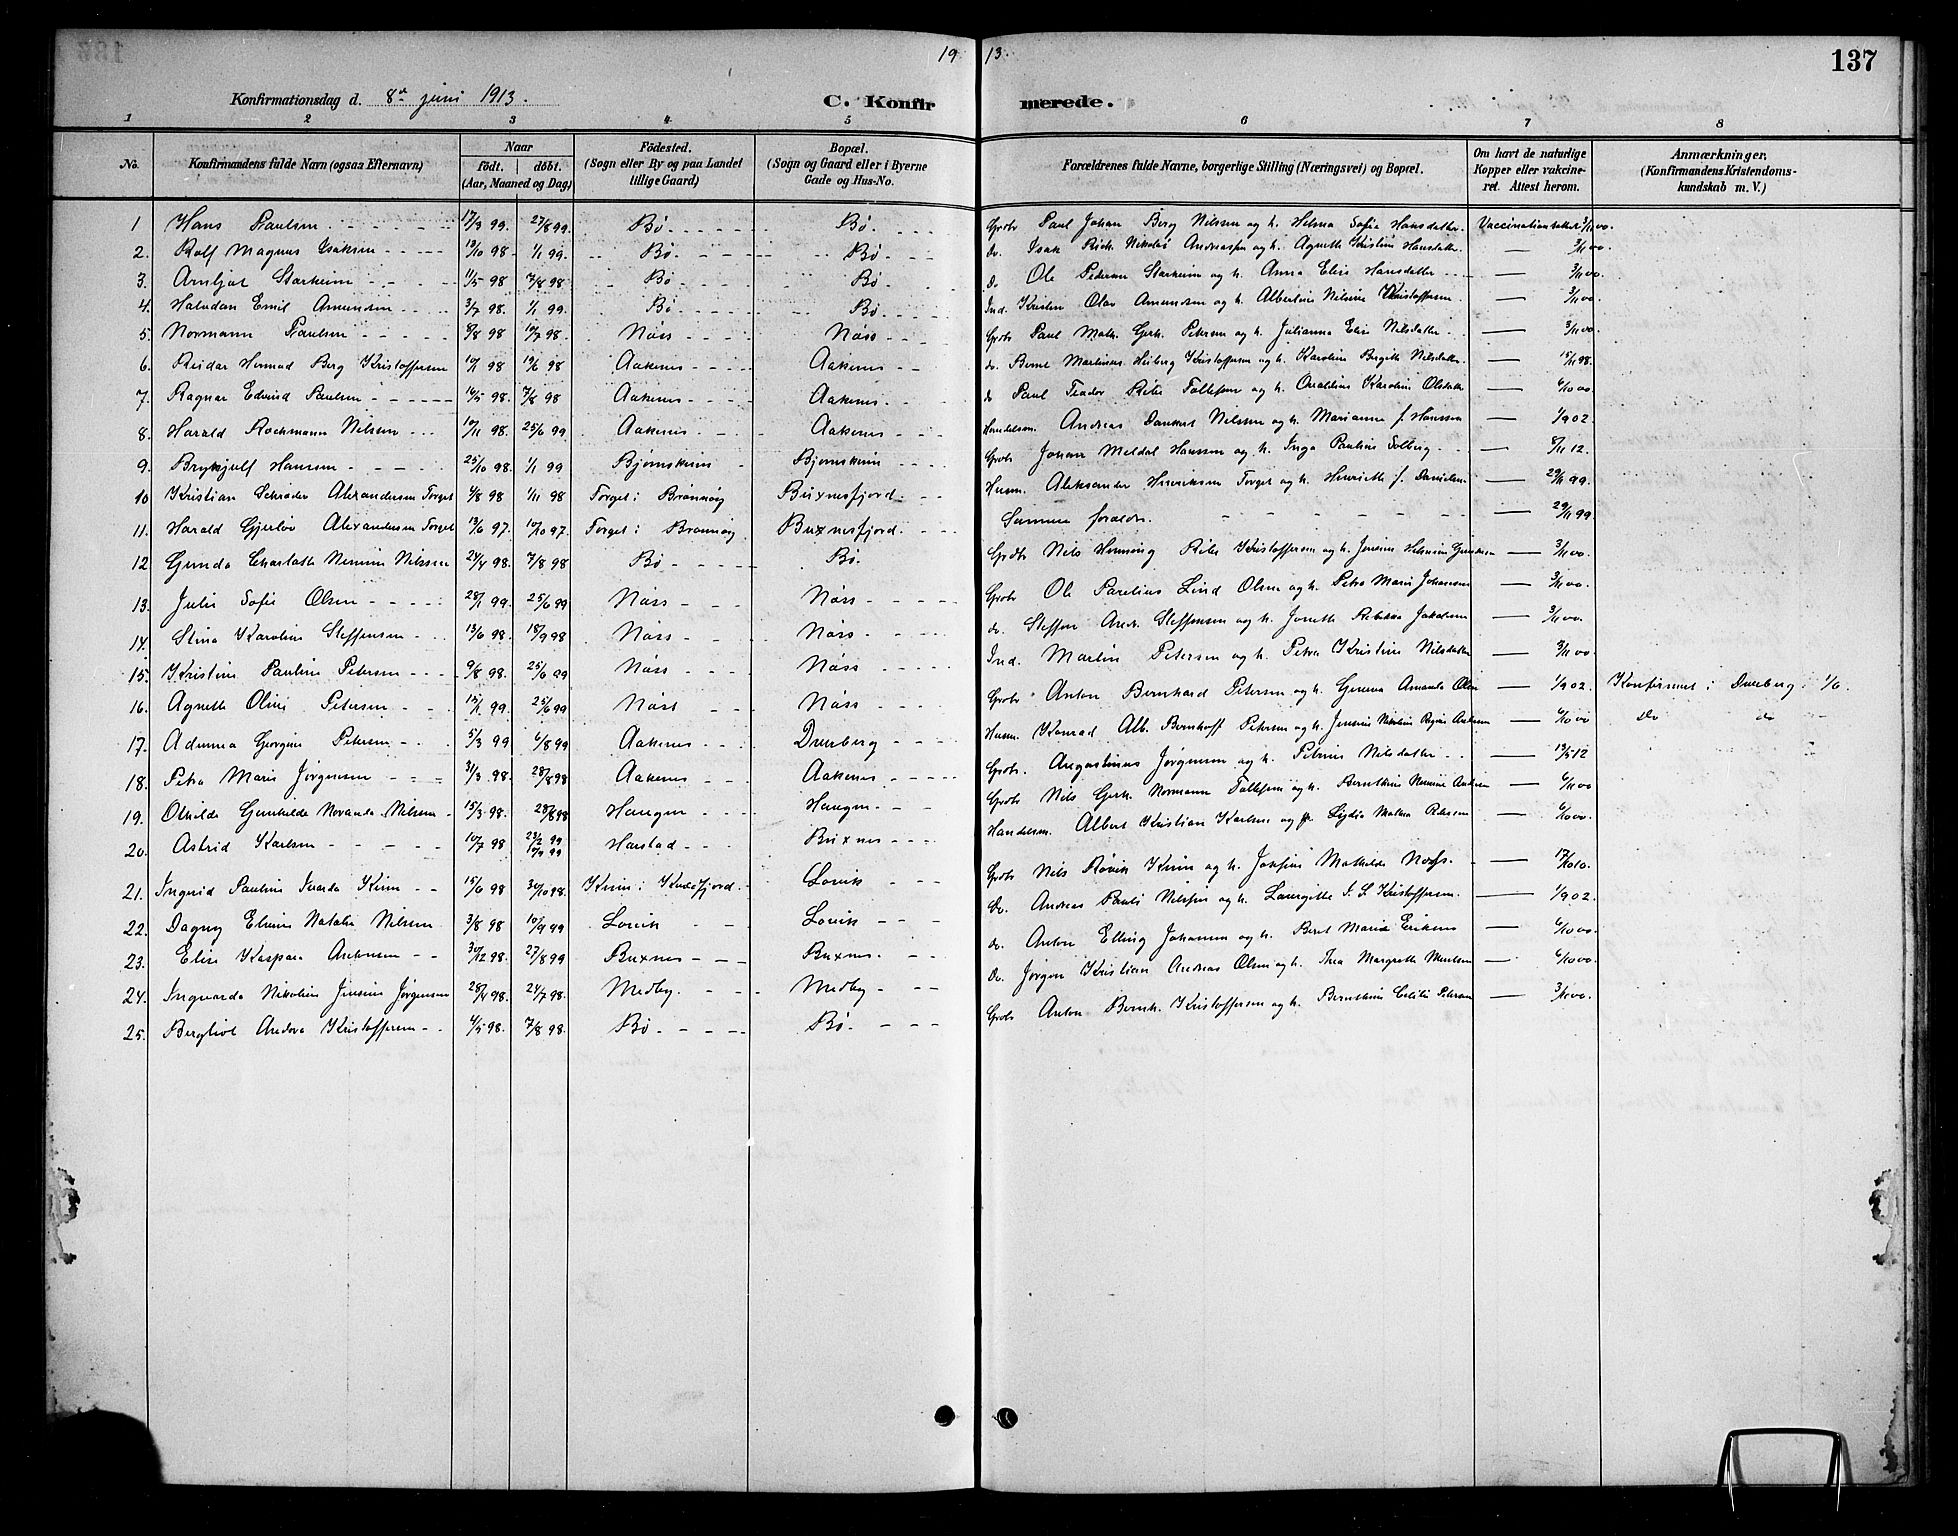 19 13.
137
Konfirmationsdag d. 8de juni 1913.
C. Konfirmerede.
1 2 3 4 5 6 7 8
No. Konfirmandens fulde Navn (ogsaa Efternavn) Naar födt. döbt. (Aar, Maaned og Dag) Födested. (Sogn eller By og paa Landet tillige Gaard) Bopæl. (Sogn og Gaard eller i Byerne Gade og Hus-No. Forældrenes fulde Navne, borgerlige Stilling (Næringsvei) og Bopæl. Om havt de naturlige Kopper eller vakcineret. Attest herom. Anmærkninger. (Konfirmandens Kristendomskundskab m. V.)
1 Hans Paulsen 17/3 99. 27/8 99. Bø Bø Grbr Paul Johan Berg Nilssen og h. Helma Sofie Hansdatter Vaccinationsattest 3/11 00.
2. Rolf Magnus Isaksen 13/10 98. 1/1 99. Bø Bø do. Isak Rich. Nikolai Andreassen og h. Agnethe Kristine Hansdatter — 3/11 00.
3. Arnljot Starheim 11/5 98 7/8 98 Bø Bø Do Ole Pedersen Starheim og h. Anna Elise Hansdatter — 3/11 00.
4. Halvdan Emil Amundsen 3/7 98. 1/1 99. Bø Bø Ind. Kristen Olav Amundsen og h. Albertine Nilsine Kristoffersen — 3/11 00.
5. Normann Paulsen 8/8 98 10/7 98. Nøss Nøss Grbr Paul Math. Gerh. Petersen og h. Julianna Elise Nilsdatter — 3/11 00.
6. Reidar Hermod Berg Kristoffersen 10/1 98 19/6 98 Aakenes Aakenes do. Bernt Martinus Heiberg Kristoffersen og h. Karoline Bergitte Nilsdatter — 15/11 98.
7. Ragnar Edvind Paulsen 16/5 98. 7/8 98 Aakenes Aakenes do Paul Teodor Peter Tollefsen og h. Karoline Olsdatter — 6/10 00.
8. Harald Rochmann Nilsen 10/11 98. 25/6 99 Aakenes Aakenes Handelsm. Andreas Dankert Nilssen og h. Marianne f. Hanssen — 1/9 02.
9. Brynjulf Hansen 25/10 98. 1/1 99 Bjørnskinn Bjørnskinn Grbr Johan Meldal Hanssen og h. Inga Pauline Solberg — 8/11 12.
10 Kristian Schrøder Alexandersen Torget 4/8 98 1/11 98 Torget i Brønnøy Buxnesfjord Husm. Aleksander Henriksen Torget og h. Henriette f. Danielsen — 29/11 99.
11. Harald Gjerløv Alexandersen Torget 13/6 97. 10/10 97. Torget i Brønnøy Buxnesfjord. Samme forældre. 29/11 99
12 Gunda Charlotte Nilssen 24/4 98. 7/8 98 Bø Bø. Grbr Nils Henning Peter Kristoffersen og h. — 3/11 00.
13. Julie Sofie Olsen 28/1 99. 25/6 99 Nøss Nøss Grbr Ole Parelius Lind Olsen og h. Petra Marie Johansen — 3/11 00.
14. Stina Karoline Steffensen 13/6 98. 18/9 98 Nøss Nøss do. Steffen Andr. Steffensen og h. Jonette Rebekka Jakobsen — 3/11 00.
15. Kristine Pauline Petersen 9/8 98. 25/6 99 Nøss Nøss Ind. Martin Petersen og h. Petra Kristine Nilsdatter — 3/11 00.
16. Agnethe Oline Petersen 15/1 99. 25/6 99 Nøss Nøss Grbr Anton Bernhard Petersen og h. Geneva Amanda Olsen — 1/9 02. Konfirmeret i Dverberg 1/6.
17. Georgine Petersen 5/3 99 6/8 99 Aakenes Dverberg Husm. Konrad Alb. Bernhoff Petersen og h. Jensine Nikoline — 6/10 00 do do
18. Petra Marie Jørgensen 31/3 98. 28/8 98 Aakenes Aakenes Grbr. Augustinus Jørgensen og h. Petrine Nilsdatter — 13/5 12
19. Othilde Gunhilde Novanda Nilsen 15/3 98. 28/8 98 Haugen Haugen Grbr Nils Gerh. Normann Tollefsen og h. — 6/11 00
20. Astrid Karlsen 10/7 98 23/2 99 Harstad Buxnes Handelsm. Albert Kristian Karlsen og h. Lydia Mathea Pedersen — 6/10 00.
21. Ingrid Pauline Kiim 15/6 98 30/10 98. Kiim i Kvæfjord Lovik Grbr Nils Røvik Kiim og h. Josefine Mathilde — 17/10 10.
22. Dagny Elvine Natalie Nilsen 3/8 98 10/9 99 Lovik Lovik Do. Andreas Pauli Nilssen og h. Kristoffersen — 1/9 02.
23. Elise Kaspara Antonsen 30/12 98. 27/8 99 Buxnes Buxnes. do. Anton Elling Johansen og h. Beret Marie Eriksen — 6/10 00.
24. Ingvarda Nikoline Jensine Jørgensen 28/4 98. 24/7 98. Medby. Medby Do. Jørgen Kristian Andreas Olsen og h. Thea Margrethe — 6/10 00.
25. Bergliot Andora Kristoffersen 4/5 98. 7/8 98. Bø Bø Grbr Anton Bernh. Kristoffersen og h. Petersen — 3/11 00.